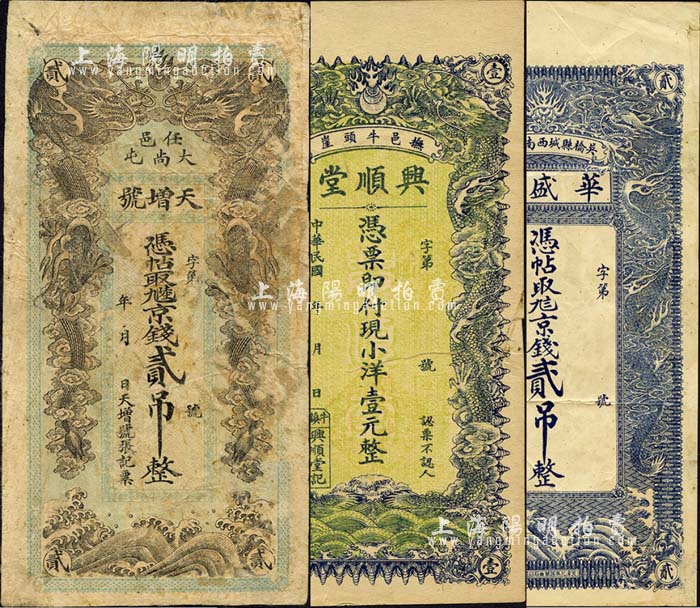 上海陽明拍賣
www.yangmingauction.com
貳
貳
任邑
大尚屯
天增號
字第
號
憑帖取
京錢貳吊整
年 月 日天增號張記票
貳
貳
壹
撫邑牛頭崖
興順堂
字第
號
認票不認人
憑票即付現小洋壹元整
中華民國 年 月 日
興順堂記
壹
貳
橋縣城西南
華盛
字第
號
憑帖取
京錢貳吊整
貳
上海陽明拍賣
www.yangmingauction.com
上海陽明拍賣
www.yangmingauction.com